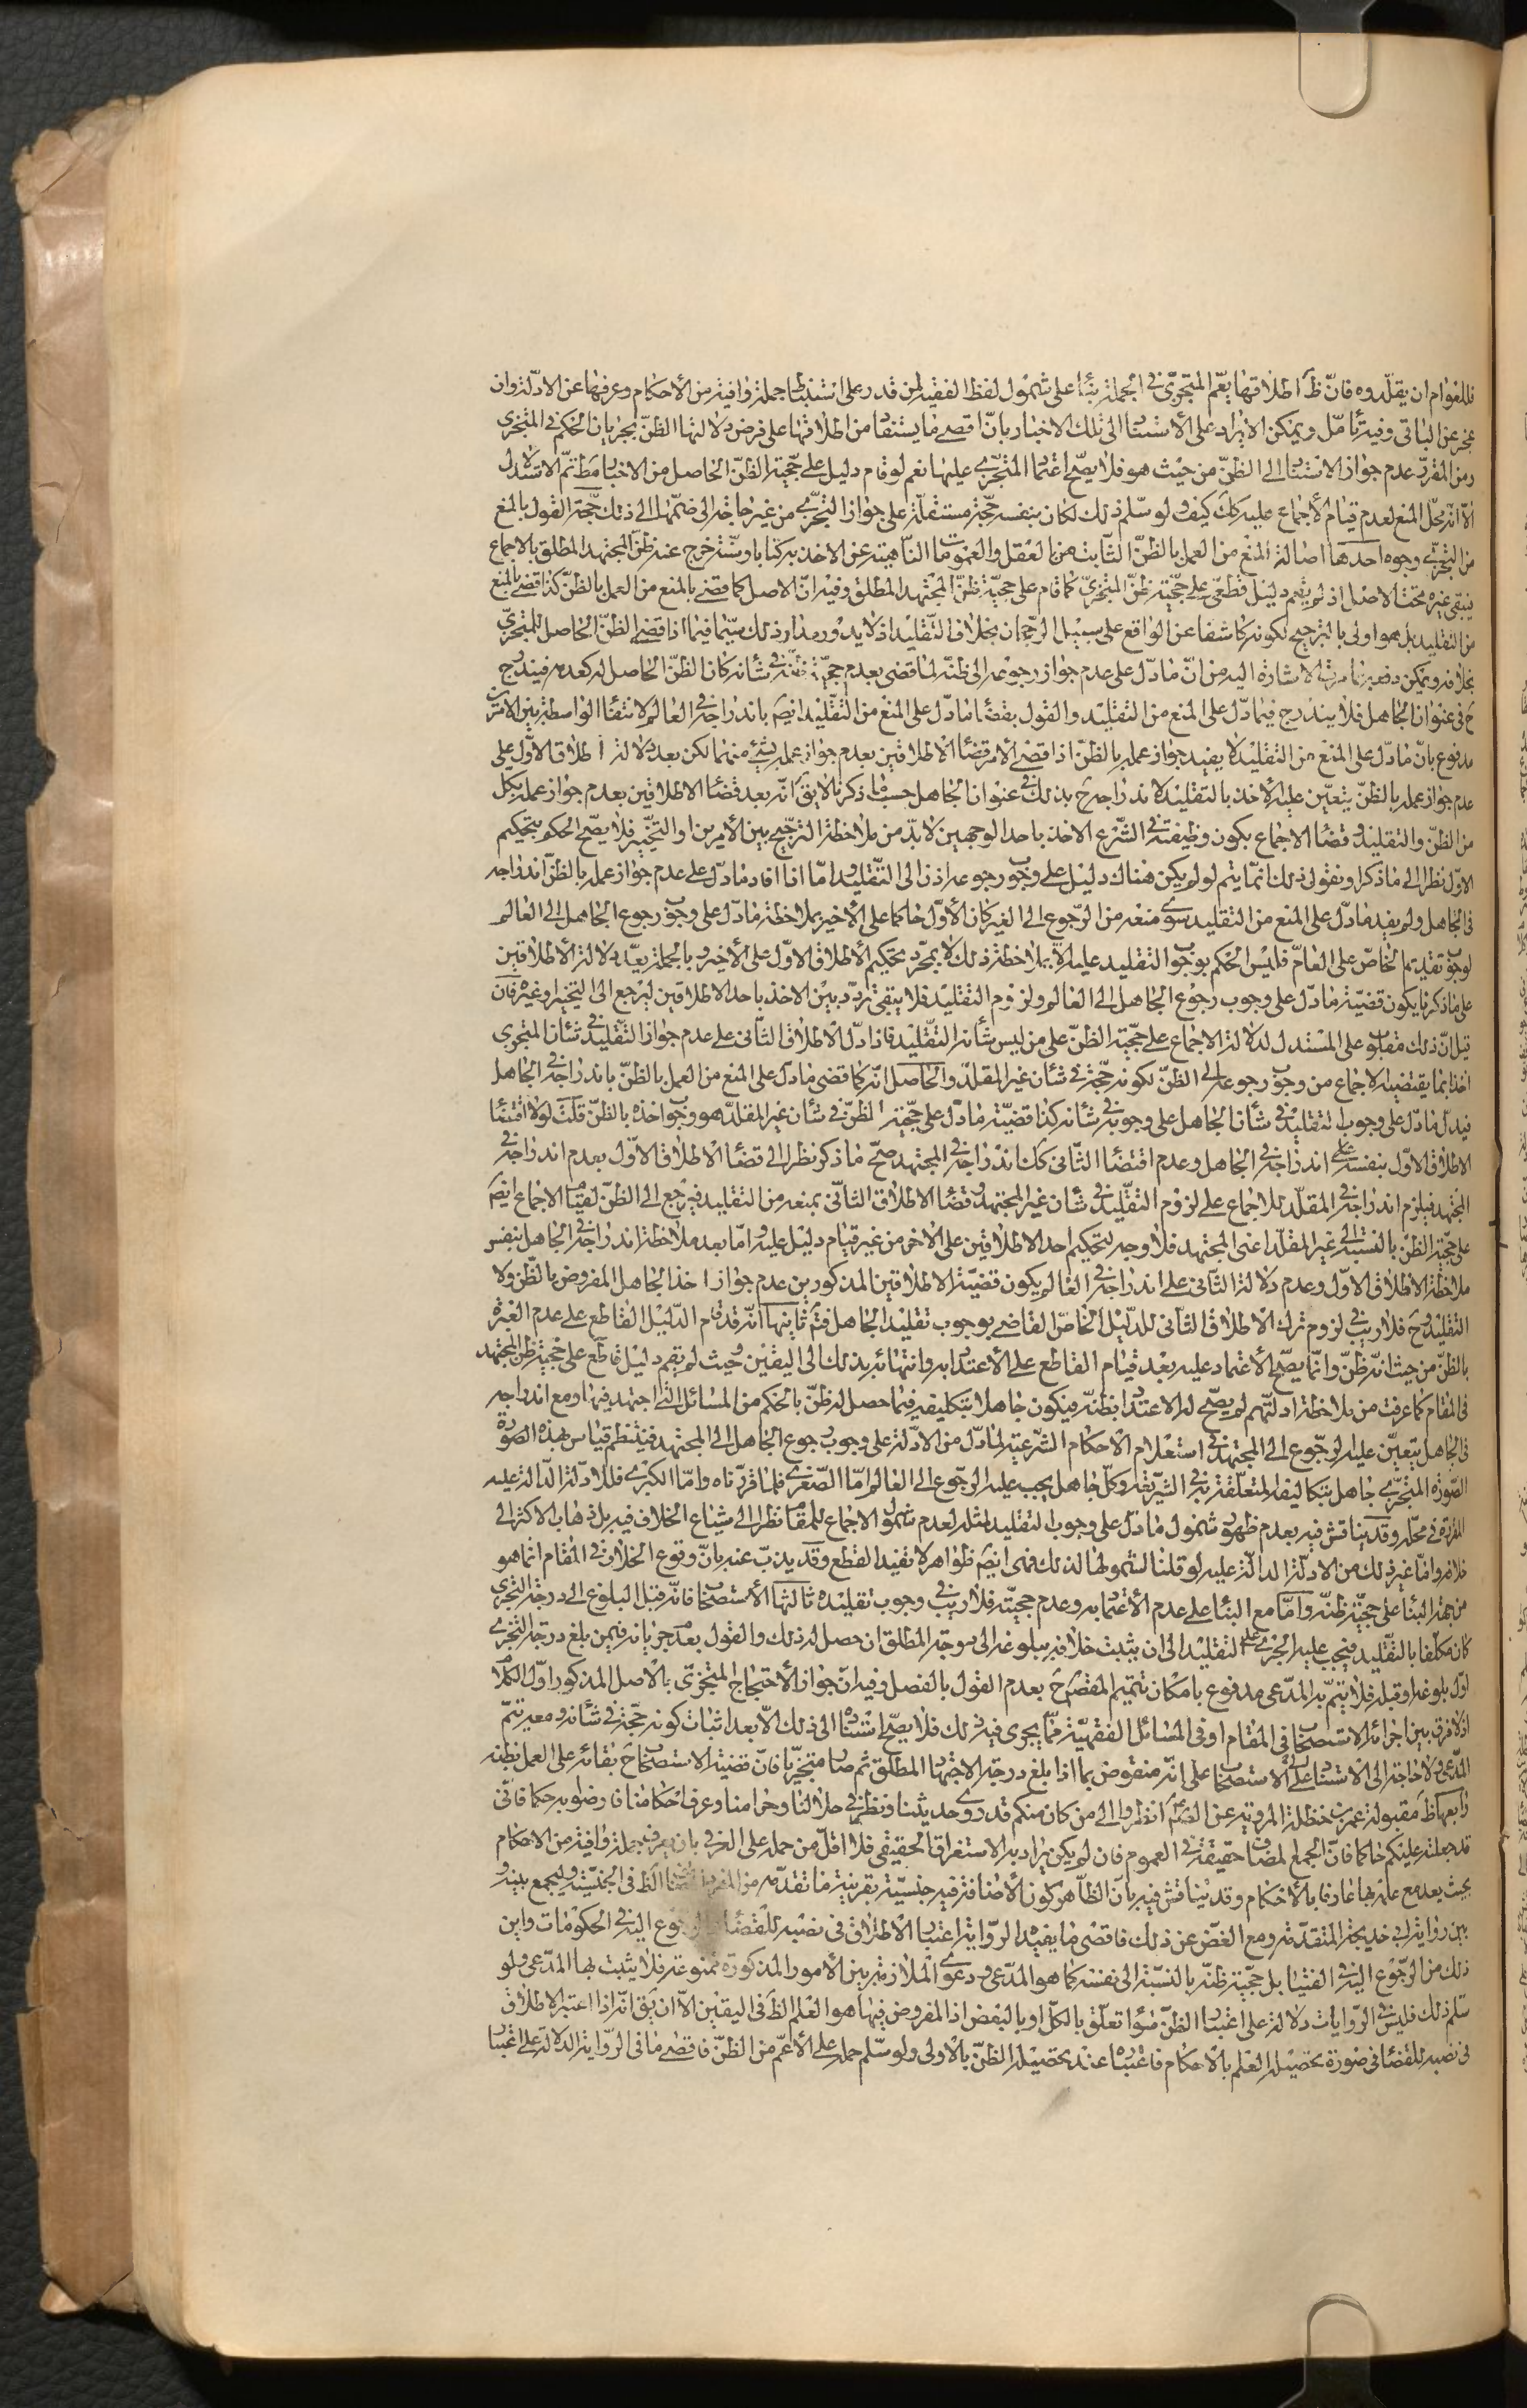 فللعوام ان يقلّدوه فانّ ظ اطلاقها يعّم المتجزّى فى الجملة بناء على شمول لفظ الفقيه لمن قدر على استنباط جملة وافية من الأحكام وعرفها عن الادلّة وان
عجز عن الباقى وفيه تأمّل ويمكن الايراد على الأستناد الى تلك الاخبار بانّ اقصى ما يستفاد من اطلاقها على فرض دلالتها الظنّ بجريان الحكم فى المتجزى
ومن المقرّر عدم جواز الاستناد الى الظنّ من حيث هو فلا يصّح اعتماد المتجزى عليها نعم لو قام دليل على حجّية الظنّ الحاصل من الاخبار مط تمّ الاستدلال
الّا انّه محلّ المنع لعدم قيام الأجماع عليه كك كيف ولو سلّم ذلك لكان بنفسه حجّة مستقلّة على جواز التجزّى من غير حاجة الى ضمّها الى ذلك حجّة القول بالمنع
من التجزّى وجوه احدها اصالة المنع من العمل بالظنّ الثّابت من العقل والعمومات النّاهية عن الاخذ به كتابا وسنّة خرج عنه ظنّ المجتهد المطلق بالاجماع
فيبقى غيره تحت الاصل اذ لم يقم دليل قطعى على حجّية ظنّ المتجزىّ كما قام على حجيّة ظنّ المجتهد المطلق وفيه انّ الاصل كما قضى بالمنع من العمل بالظنّ كذا قضى بالمنع
من التقليد بل هو اولى بالترجيح لكونه كاشفا عن الواقع على سبيل الرجحان بخلاف التّقليد اذ لا يدور مدار ذلك سيّما فيما اذا قضى الظنّ الحاصل للمتجزىّ
بخلافه ويمكن دفعه بما مرت الاشارة اليه من انّ ما دلّ على عدم جواز رجوعه الى ظنّه لما قضى بعدم حجيّة ظنّه فى شأنه كان الظنّ الحاصل له كعدمه فيندرج
ح فى عنوان الجاهل فلا يندرج فيما دلّ على المنع من التقليد والقول بقضاء ما دلّ على المنع من التقليد ايضَ باندراجه فى العالم لانتفاء الواسطة بين الامرين
مدفوع بانّ ما دلّ على المنع من التقليد لا يفيد جواز عمله بالظنّ اذا قضى الأمر قضاء الاطلاقين بعدم جواز عمله بشئ منهما لكن بعد دلالة اطلاق الاوّل على
عدم جواز عمله بالظنّ يتعيّن عليه الأخذ بالتقليد لاندراجه ح بذلك فى عنوان الجاهل حسبما ذكرنا لا يقَ انّه بعد قضاء الاطلاقين بعدم جواز عمله بكل
من الظنّ والتقليد وقضاء الاجماع بكون وظيفته فى الشّرع الاخذ باحد الوجهين لا بدّ من ملاحظة الترجيح بين الأمرين او التخيّير فلا يصّح الحكم بتحكيم
الاوّل نظرا الى ما ذكر اذ نقول ذلك انمّا يتم لو لم يكن هناك دليل على وجوب رجوعه اذن الى التّقليد وامّا اذا افاد ما دلّ على عدم جواز عمله بالظنّ اندراجه
فى الجاهل ولم يفد ما دلّ على المنع من التقليد سوى منعه من الرّجوع الى الغير كان الأوّل حاكما على الأخير بملاحظة ما دلّ على وجوب رجوع الجاهل الى العالم
لوجوب تقديم الخاصّ على العامّ فليس الحكم بوجوب التقليد عليه الّا بملاحظة ذلك لا بمجرّد تحكيم الأطلاق الاوّل على الأخير وبالجملة بعد دلالة الأطلاقين
على ما ذكرنا يكون قضيّة ما دلّ على وجوب رجوع الجاهل الى العالم ولزوم التقليد فلا يبقى تردّد بين الاخذ باحد الاطلاقين ليرجع الى التّخيير او غيره فان
قيل انّ ذلك مقلوب على المستدل لدلالة الاجماع على حجّية الظنّ على من ليس شأنه التّقليد فاذا دلّ الاطلاق الثّانى على عدم جواز التّقليد فى شأن المتجزى
اخذ بما يقتضيه الاجماع من وجوب رجوعه الى الظنّ لكونه حجّة فى شأن غير المقلّد والحاصل انّه كما قضى ما دلّ على المنع من العمل بالظنّ باندراجه فى الجاهل
فيدلّ ما دلّ على وجوب التقليد فى شأن الجاهل على وجوبه فى شأنه كذا قضيّة ما دلّ على حجّية الظنّ فى شأن غير المقلّد هو وجوب اخذه بالظنّ قلت لولا اقتضاء
الاطلاق الاوّل بنفسه على اندراجه فى الجاهل وعدم اقتضاء الثّانى كك اندراجه فى المجتهد صحّ ما ذكر نظرا الى قضاء الاطلاق الاوّل بعدم اندراجه فى
المجتهد فيلزم اندراجه فى المقلّد للاجماع على لزوم التّقليد فى شأن غير المجتهد وقضاء الاطلاق الثّانى بمنعه من التقليد فيرجع الى الظنّ لقيام الاجماع ايضَ
على حجّية الظنّ بالنسبة الى غير المقلّد اعنى المجتهد فلا وجه لتحكيم احد الاطلاقين على الاخر من غير قيام دليل عليه وامّا بعد ملاحظة اندراجه فى الجاهل بنفس
ملاحظة الاطلاق الاوّل وعدم دلالة الثّانى على اندراجه فى العالم يكون قضيّة الاطلاقين المذكورين عدم جواز اخذ الجاهل المفروض بالظّن ولا
التقليد وح فلا ريب فى لزوم ترك الاطلاق الثانى للدّليل الخاصّ القاضى بوجوب تقليد الجاهل فتم ثانيها انّه قد قام الدّليل القاطع على عدم العبرة
بالظنّ من حيث انّه ظنّ وانّما يصّح الأعتماد عليه بعد قيام القاطع على الأعتداد به وانتهائه بذلك الى اليقين وحيث لم يقم دليل قاطع على حجّية ظنّ المجتهد
فى المقام كما عرفت من ملاحظة ادلّتهم لم يصّح له الاعتداد بظنّه فيكون جاهلا بتكليفه فيما حصل له ظنّ بالحكم من المسائل التى اجتهد فيها ومع اندراجه
فى الجاهل يتعيّن عليه الرجّوع الى المجتهد فى استعلام الأحكام الشّرعية لما دلّ من الادلّة على وجوب رجوع الجاهل الى المجتهد فينتظم قياس بهذه الصّورة
الصّورة المتجزّى جاهل بتكاليفه المتعلّقة به فى الشّريعة وكلّ جاهل يجب عليه الرجّوع الى العالم امّا الصّغرى فلما قرّرناه وامّا الكبرى فللادلّة الدّالة عليه
المقرّرة فى محلّه وقد يناقش فيه بعدم ظهور شمول ما دلّ على وجوب التقليد لمثله لعدم شمول الاجماع للمقام نظرا الى شياع الخلاف فيه بل ذهاب الاكثر الى
خلافه وامّا غير ذلك من الادلّة الدالّة عليه لو قلنا بشمولها لذلك فهى ايضَ ظواهر لا تفيد القطع وقد يذبّ عنه بانّ وقوع الخلاف فى المقام انّما هو
من جهة البناء على حجيّة ظنّه وامّا مع البناء على عدم الأعتماد به وعدم حجيّته فلا ريب فى وجوب تقليده ثالثها الأستصحاب فانّه قبل البلوغ الى درجة التجزى
كان مكلّفا بالتّقليد فيجب عليه الجرى على التقليد الى ان يثبت خلافه ببلوغه الى درجة المطلق ان حصل له ذلك والقول بعدم جريانه فيمن بلغ درجة التجزى
اوّل بلوغه او قبله فلا يتمّ به المدّعى مدفوع بامكان تتميم المقصود ح بعدم القول بالفصل وفيه انّ جواز الأحتجاج المتجزى بالاصل المذكور اوّل الكلام
اذ لا فرق بين اجرائه الاستصحاب فى المقام او فى المسائل الفقهيّة ممّا يجرى فيه ذلك فلا يصّح استناده الى ذلك الّا بعد اثبات كونه حجّة فى شأنه ومعه يتمّ
المدّعى ولا حاجة الى الاستناد الى الأستصحاب على انّه منقوض بما اذا بلغ درجة الاجتهاد المطلق ثم صار متجزيّا فانّ قضيّة الاستصحاب ح بقائه على العمل بظنه
رابعها ظ مقبولة عمر بن حنظلة المروية عن الصّادق انظروا الى من كان منكم قد روى حديثنا ونظر فى حلالنا وحرامنا وعرف احكامنا فارضوا به حكما فانّى
قد جعلته عليكم حاكما فانّ الجمع المضاف حقيقة فى العموم فان لم يكن يراد به الاستغراق الحقيقى فلا اقلّ من حمله على العرفى بان يعرف جملة وافية من الاحكام
بحيث يعد مع علمه بها عارفا بالأحكام وقد يناقش فيه بانّ الظّاهر كون الأضافة فيه جنسيّة بقرينة ما تقدّمه من المفرد المضاف الظ فى الجنسيّة وليجمع بينه و
بين رواية ابى خديجة المتقدّمة ومع الغضّ عن ذلك فاقضى ما يفيد الرّواية اعتبار الأطلاق فى نصبه للقضاء والرجوع اليه فى الحكومات واين
ذلك من الرجّوع اليه فى الفتيا بل حجّية ظنّه بالنّسبة الى نفسه كما هو المدّعى ودعوى الملازمة بين الأمور المذكورة ممنوعة فلا يثبت بها المدّعى ولو
سلّم ذلك فليس فى الرّوايات دلالة على اعتبار الظنّ سواء تعلّق بالكلّ او بالبعض اذ المفروض فيها هو العلم الظ فى اليقين الّا ان يقَ انّه اذا اعتبر الاطلاق
فى نصبه للقضاء فى صورة تحصيله العلم بالأحكام فاعتباره عند تحصيله الظنّ بالأولى ولو سلّم حمله على الأعمّ من الظنّ فاقصى ما فى الرّواية الدلالة على اعتبار